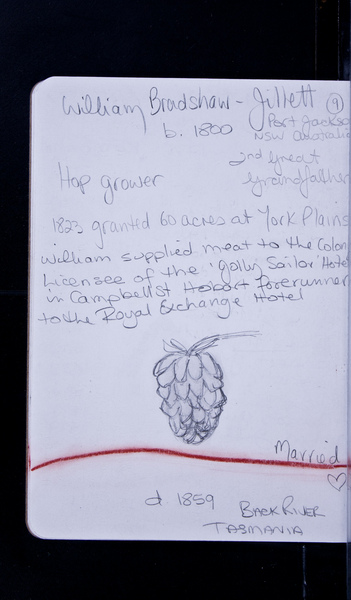 William Bradshaw - Jillett (9)
b. 1800 Port Jackso
NSW Australia
2nd Great
Hop grower Grandfather
1823 granted 60 acres at York Plains
William supplied meat to the Colon
Licensee of the 'Jolly Sailor' Hotel
in Campbell St Hobart forerunner
to the Royal Exchange Hotel
Married
d. 1859 BACK RIVER
TASMANIA